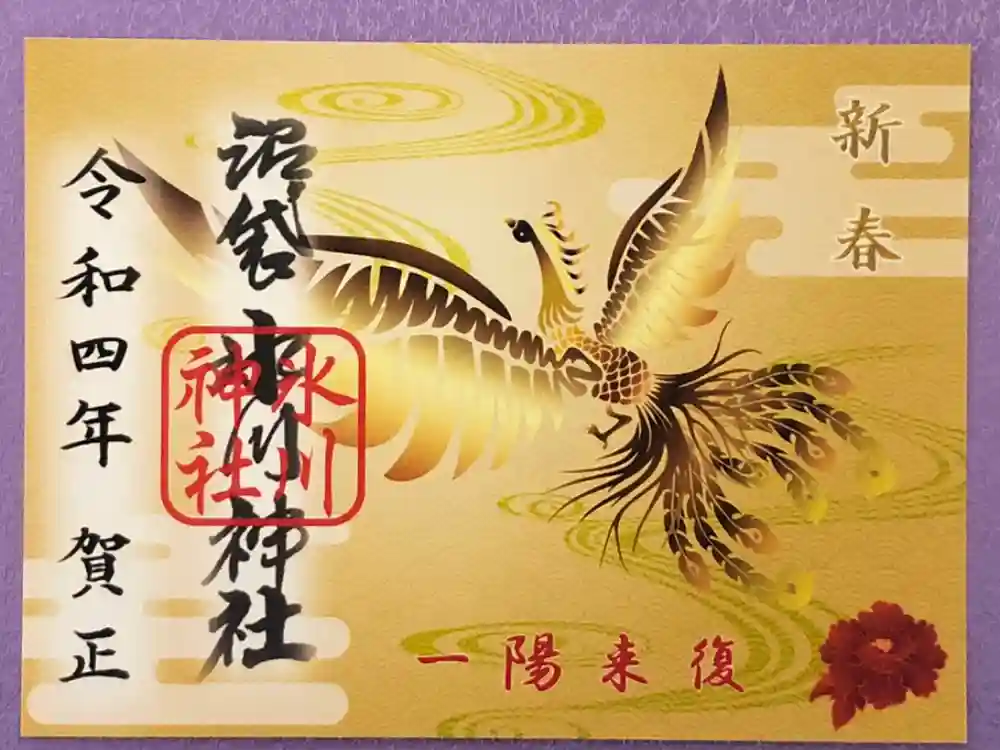 新春
沼袋氷川神社
氷川
神社
令和四年 賀正
一陽来復